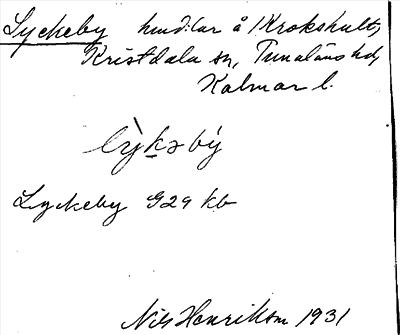 Lyckeby hmd:lar å /Krokshult,
Kristdala sn, Tunaläns hd,
Kalmar l.
lỳkəbý
Lyckeby G29 kb
Nils Henrikson 1931